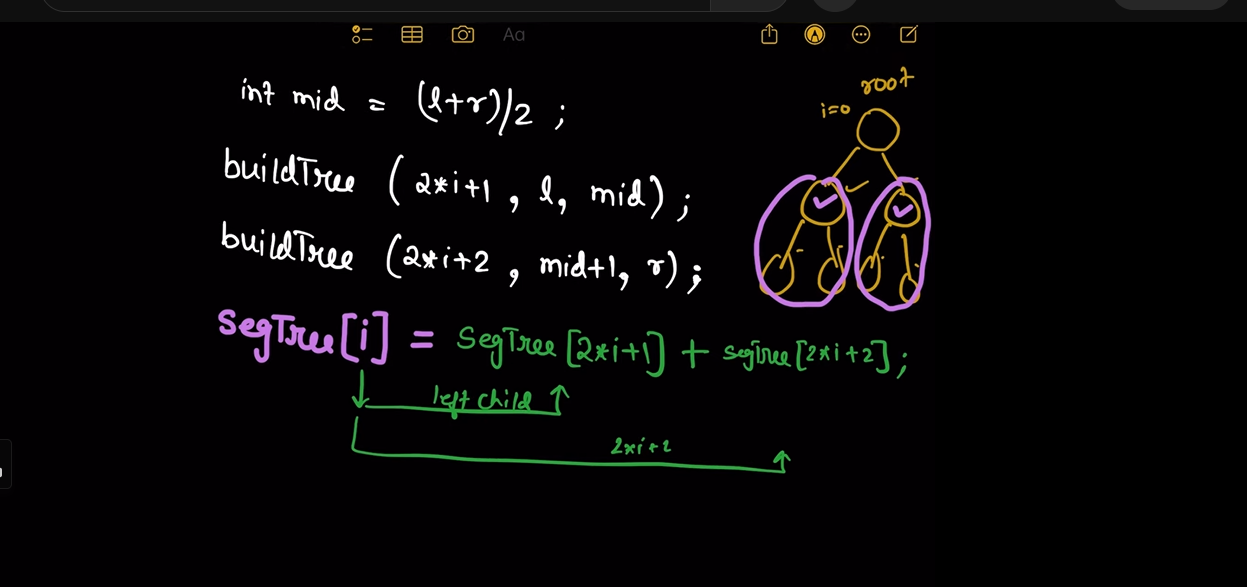 Aa
root
i=0
int mid = (l+r)/2 ;
buildTree (2*i+1, l, mid) ;
buildTree (2*i+2, mid+1, r) ;
SegTree[i] = SegTree[2*i+1] + segTree[2*i+2] ;
left child
2xi+2